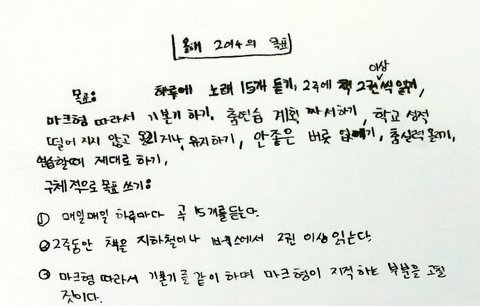 올해 2014의 목표
이상
목표: 하루에 노래 15개 듣기, 2주에 책 2권씩 읽기,
마크형 따라서 기본기 하기, 춤연습 계획 짜서하기, 학교 성적
떨어지지 않고 올리거나, 유지하기, 안좋은 버릇 없애기, 춤실력 올리기,
연습할때 제대로 하기,
구체적으로 목표 쓰기:
① 매일매일 하루마다 곡 15개를듣는다.
② 2주동안 책을 지하철이나 에서 2권 이상 읽는다.
③ 마크형 따라서 기본기를 같이 하며 마크형이 지적하는 부분을 고칠
것이다.